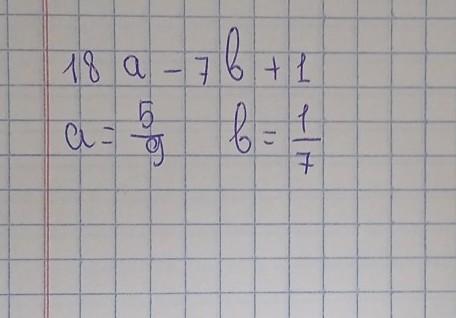 18 a - 7 b + 1
a = 5/9 b = 1/7